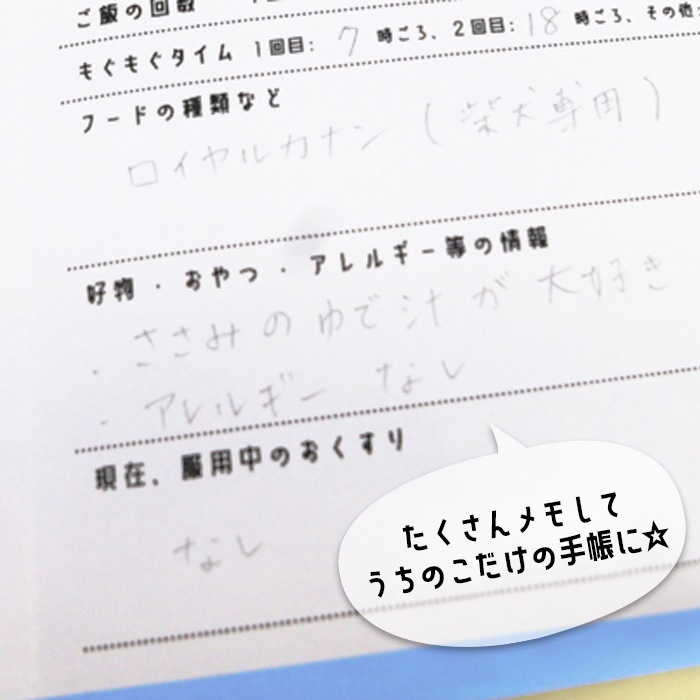 ご飯の回数
もぐもぐタイム 1回目: 7 時ごろ、2回目: 18 時ごろ、その他
フードの種類など
ロイヤルカナン (柴犬専用)
好物・おやつ・アレルギー等の情報
・ささみのゆで汁が大好き
・アレルギー なし
現在、服用中のおくすり
なし
たくさんメモして
うちのこだけの手帳に☆